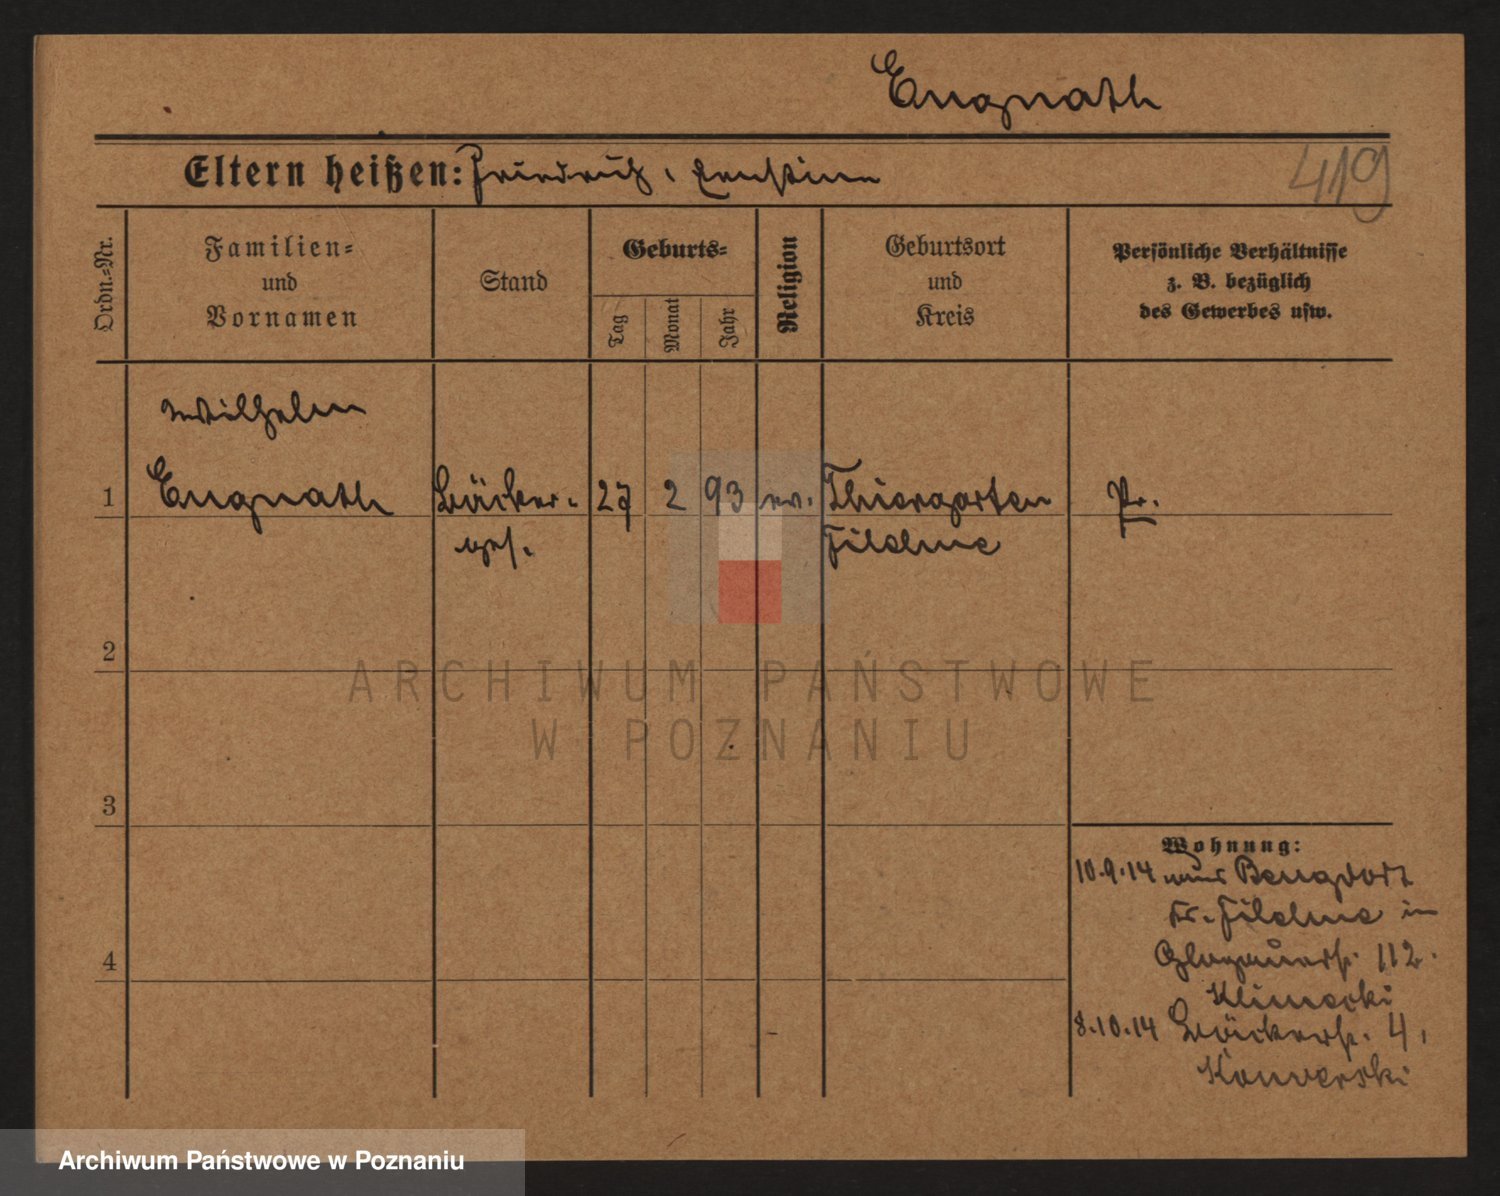 Engnath
Eltern heißen: Friedrich, Ernstine
419
Ordn.-Nr.
Familien-
und
Vornamen
Stand
Geburts-
Tag
Monat
Jahr
Religion
Geburtsort
und
Kreis
Persönliche Verhältnisse
z. B. bezüglich
des Gewerbes usw.
Wilhelm
1 Engnath Bäcker- 27 2 93 ev. Thiergarten Pr.
ges. Filehne
2
3
4
Wohnung:
10.9.14 aus
Kr. Filehne in
Glogauerstr. 112.
Klimecki
8.10.14 Bäckerstr. 4,
Konverski
ARCHIWUM PAŃSTWOWE
W POZNANIU
Archiwum Państwowe w Poznaniu